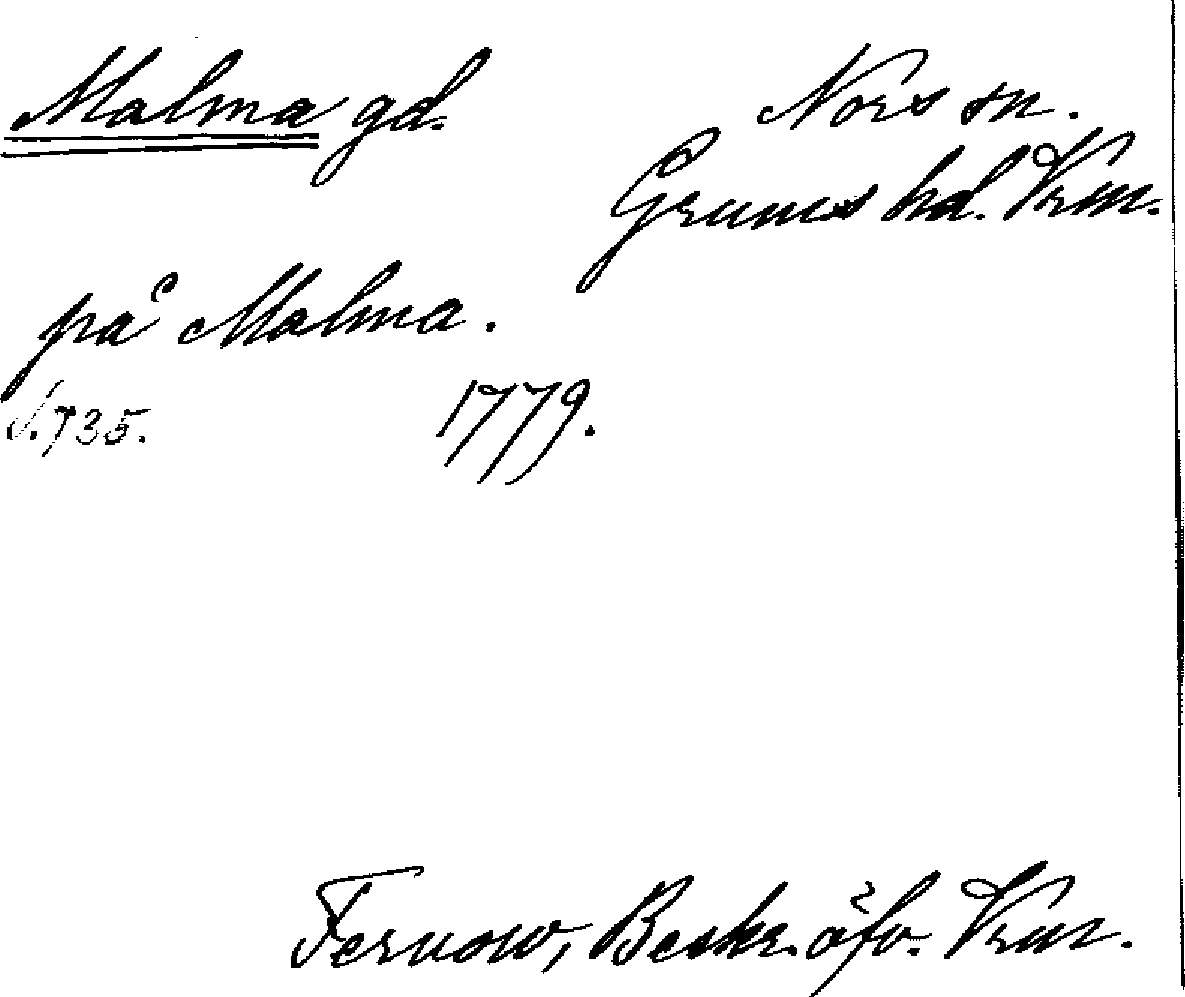 Malma gd.
Nors sn.
Grums hd. Vrm.
på Malma.
S. 735.
1779.
Fernow, Beskr. öfv. Vrm.